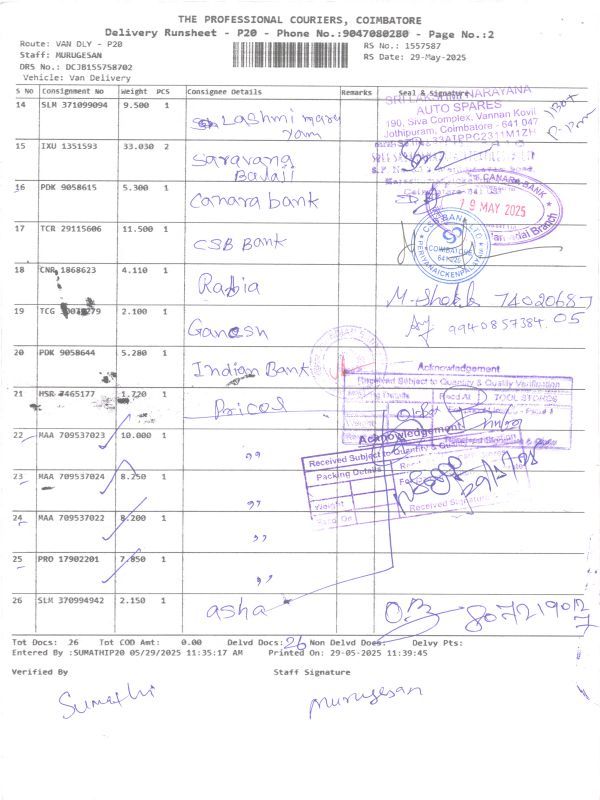 THE PROFESSIONAL COURIERS, COIMBATORE
Delivery Runsheet - P20 - Phone No.:9047080280 - Page No.:2
Route: VAN DLY - P20
RS No.: 1557587
Staff: MURUGESAN
RS Date: 29-May-2025
DRS No.: DCJB155758702
Vehicle: Van Delivery
S No Consignment No Weight PCS Consignee Details Remarks Seal & Signature
14 SLM 371099094 9.500 1 Lashmi
SRI LAKSHMI NARAYANA
AUTO SPARES
190, Siva Complex, Vannan Kovil
Jothipuram, Coimbatore - 641 047
15 IXU 1351593 33.030 2 Saravana
Balaji
16 PDK 9058615 5.300 1 Canara bank
CANARA BANK
19 MAY 2025
Branch
17 TCR 29115606 11.500 1 CSB Bank
CSB BANK LTD
COIMBATORE
PERIYANAICKENPALAYAM
18 CNR 1868623 4.110 1 Rabia
19 TCG 2.100 1 Ganesh
20 PDK 9058644 5.280 1 Indian Bank
Acknowledgement
Received Subject to Quantity & Quality Verification
TOOL STORES
21 HSR 7465177 1.720 1 Pricol
22 MAA 709537023 10.000 1 "
Acknowledgement
Received Subject to Quantity &
Packing Details
23 MAA 709537024 8.250 1 "
Weight
Received Signature
24 MAA 709537022 8.200 1 "
25 PRO 17902201 7.850 1 "
26 SLM 370994942 2.150 1 asha
Tot Docs: 26 Tot COD Amt: 0.00 Delvd Docs: 26 Non Delvd Docs: Delvy Pts:
Entered By :SUMATHIP20 05/29/2025 11:35:17 AM Printed On: 29-05-2025 11:39:45
Verified By Staff Signature
Sumathi murugesan